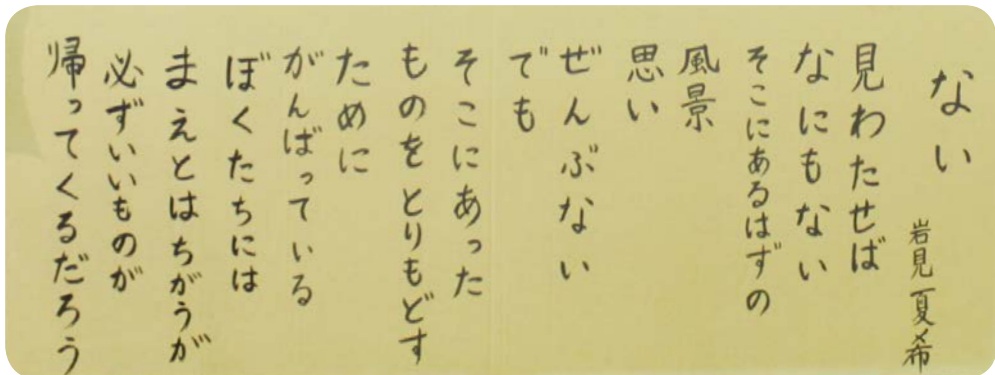 ない
岩見 夏希
見わたせば
なにもない
そこにあるはずの
風景
思い
ぜんぶない
でも
そこにあった
ものをとりもどす
ために
がんばっている
ぼくたちには
まえとはちがうが
必ずいいものが
帰ってくるだろう